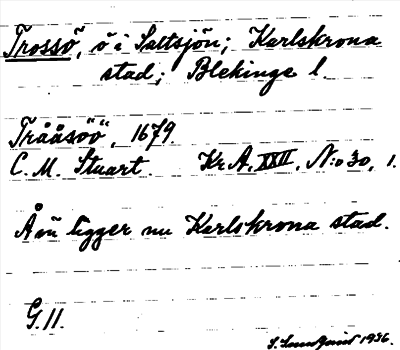 Trossö, ö i Saltsjön; Karlskrona
stad; Blekinge l.
Trååsöö, 1679.
C. M. Stuart. Kr A, XXII, N:o 30, 1.
Å ön ligger nu Karlskrona stad.
G. 11.
1936.